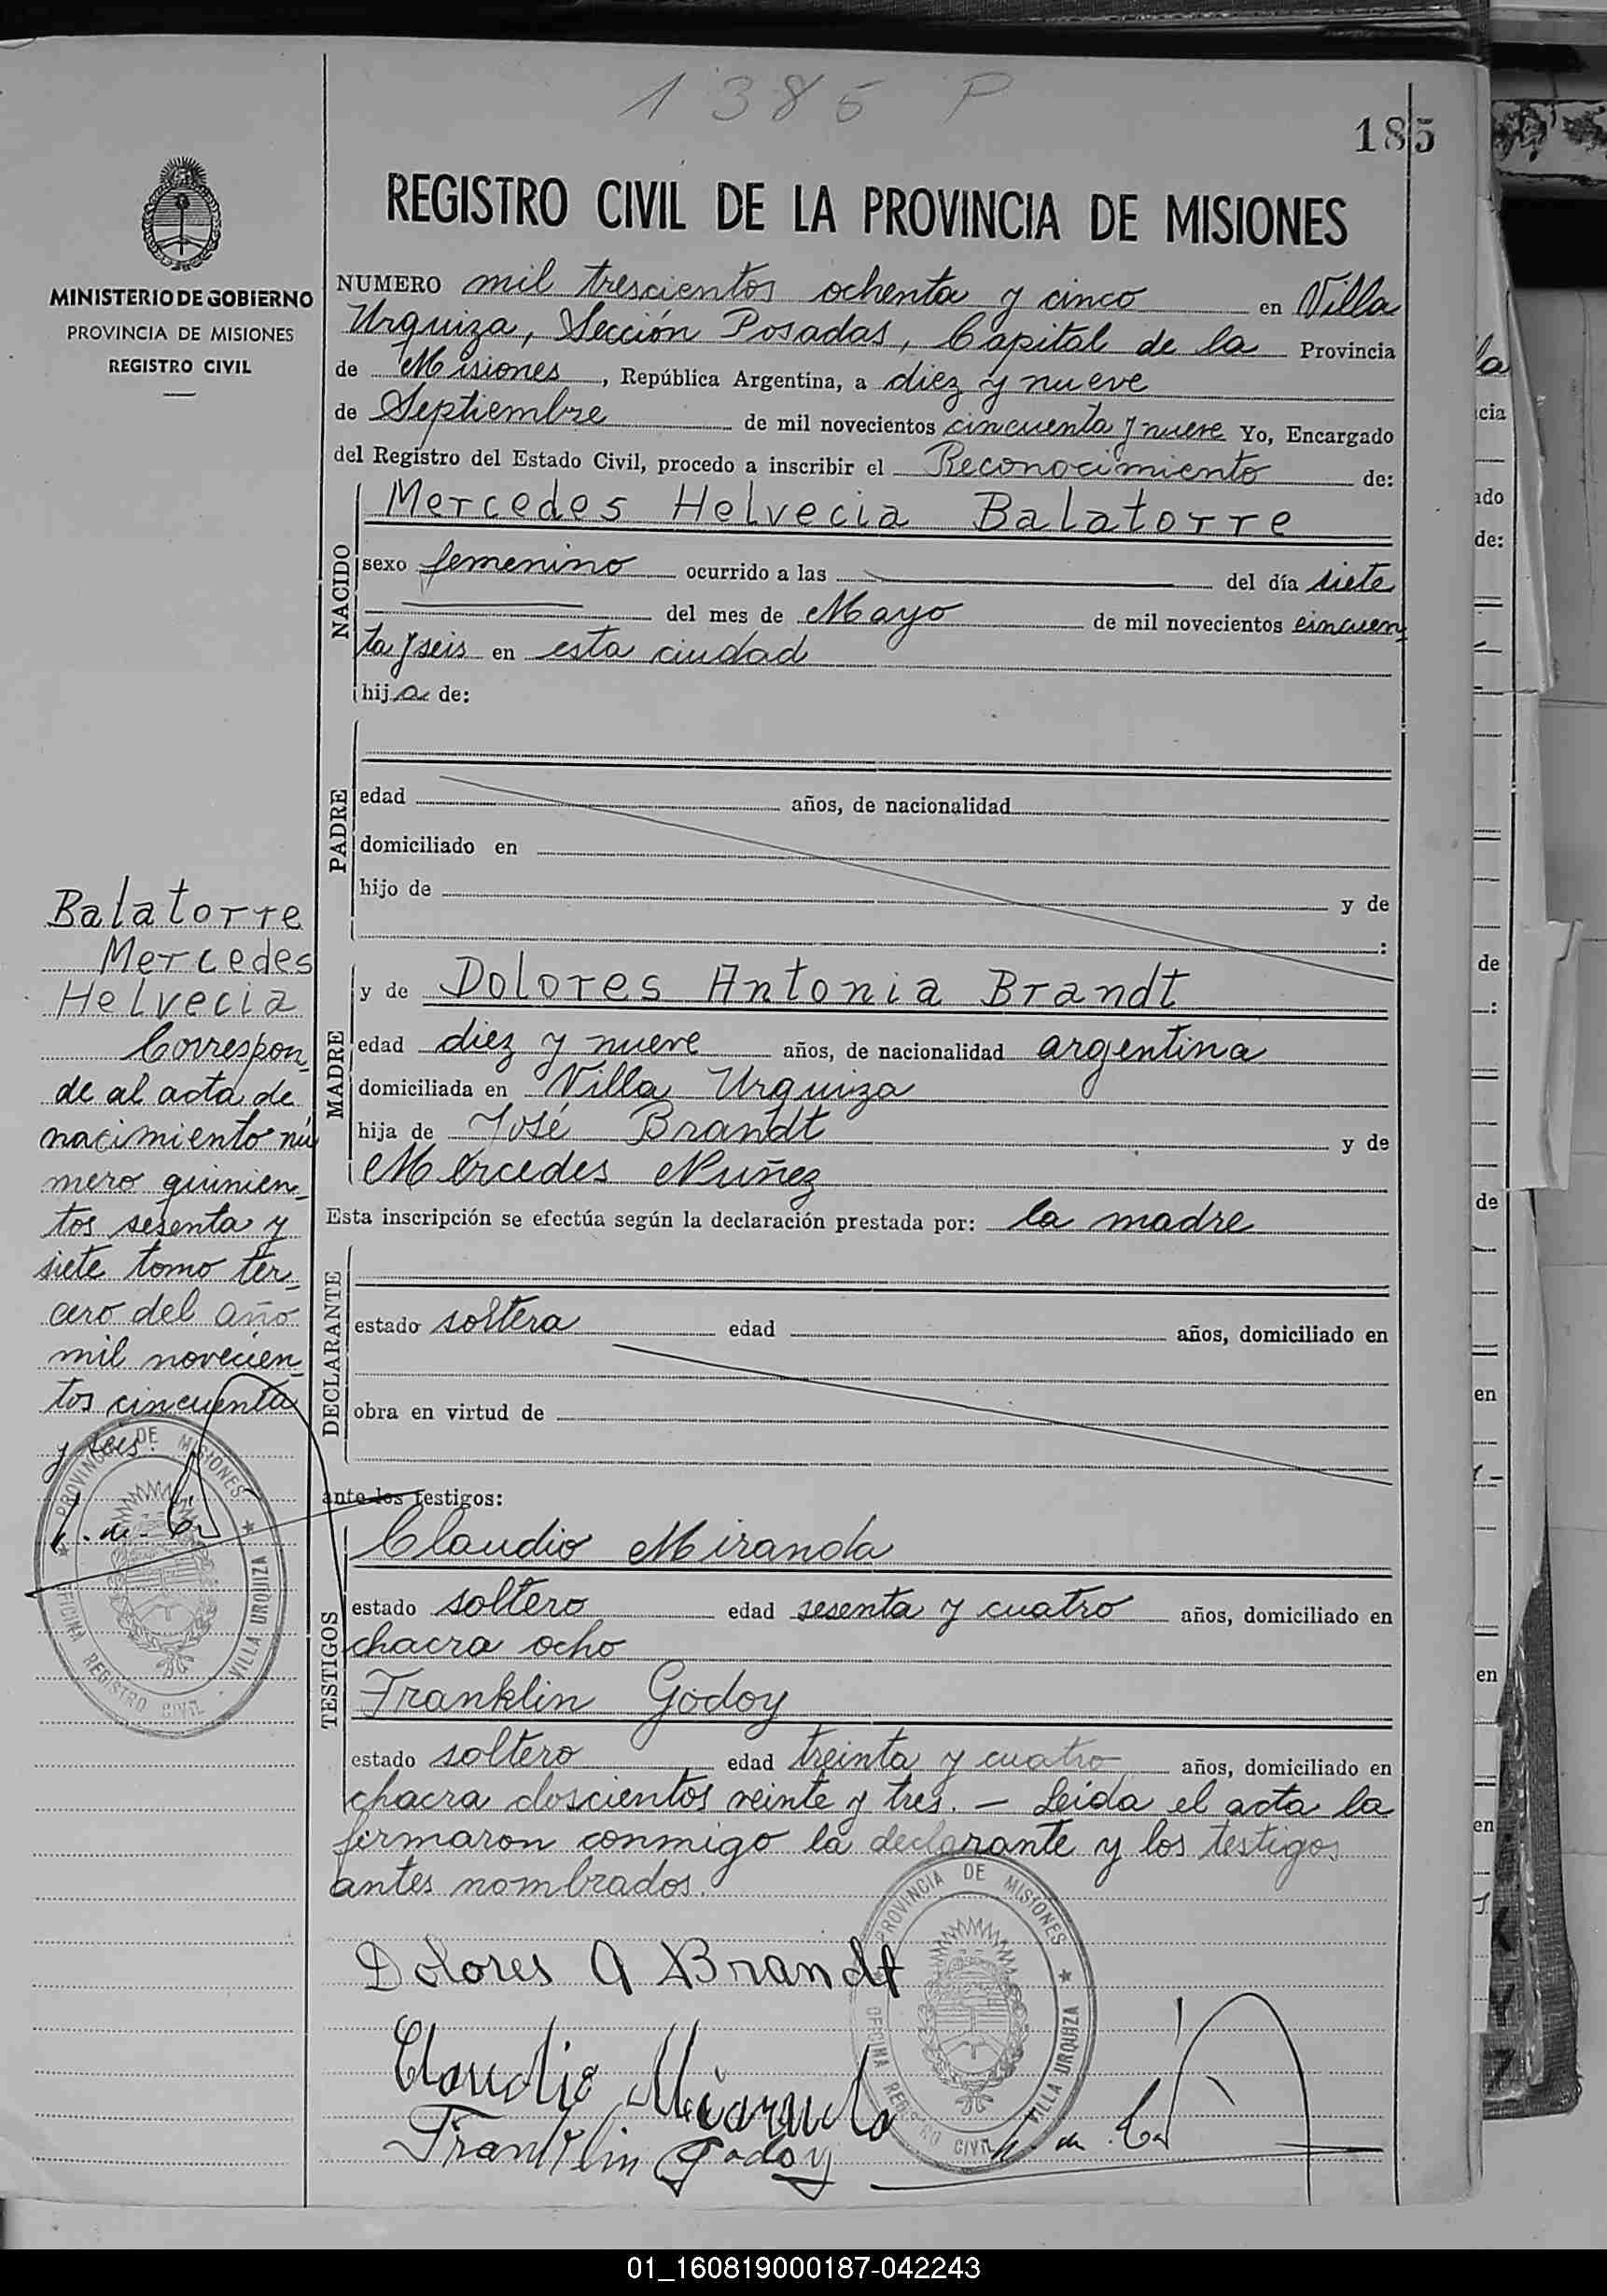 1385 P
185
MINISTERIO DE GOBIERNO
PROVINCIA DE MISIONES
REGISTRO CIVIL
REGISTRO CIVIL DE LA PROVINCIA DE MISIONES
NUMERO mil trescientos ochenta y cinco en Villa
Urquiza, Sección Posadas, Capital de la Provincia
de Misiones, República Argentina, a diez y nueve
de Septiembre de mil novecientos cincuenta y nueve Yo, Encargado
del Registro del Estado Civil, procedo a inscribir el Reconocimiento de:
NACIDO
Mercedes Helvecia Balatorre
sexo femenino ocurrido a las del día siete
del mes de Mayo de mil novecientos cincuen
ta y seis en esta ciudad
hija de:
PADRE
edad años, de nacionalidad
domiciliado en
hijo de y de
:
MADRE
y de Dolores Antonia Brandt
edad diez y nueve años, de nacionalidad argentina
domiciliada en Villa Urquiza
hija de José Brandt y de
Mercedes Nuñez
Esta inscripción se efectúa según la declaración prestada por: la madre
DECLARANTE
estado soltera edad años, domiciliado en
obra en virtud de
ante los testigos:
TESTIGOS
Claudio Miranda
estado soltero edad sesenta y cuatro años, domiciliado en
chacra ocho
Franklin Godoy
estado soltero edad treinta y cuatro años, domiciliado en
chacra doscientos veinte y tres. — Leida el acta la
firmaron conmigo la declarante y los testigos
antes nombrados.
Dolores A Brandt
Claudio Miranda
Franklin Godoy
PROVINCIA DE MISIONES
OFICINA REGISTRO CIVIL - VILLA URQUIZA
Balatorre
Mercedes
Helvecia
Correspon
de al acta de
nacimiento nú
mero quinien
tos sesenta y
siete tomo ter
cero del año
mil novecien
tos cincuenta
y seis.
PROVINCIA DE MISIONES
OFICINA REGISTRO CIVIL - VILLA URQUIZA
la
cia
ado
de:
de
de
en
en
en
01_160819000187-042243